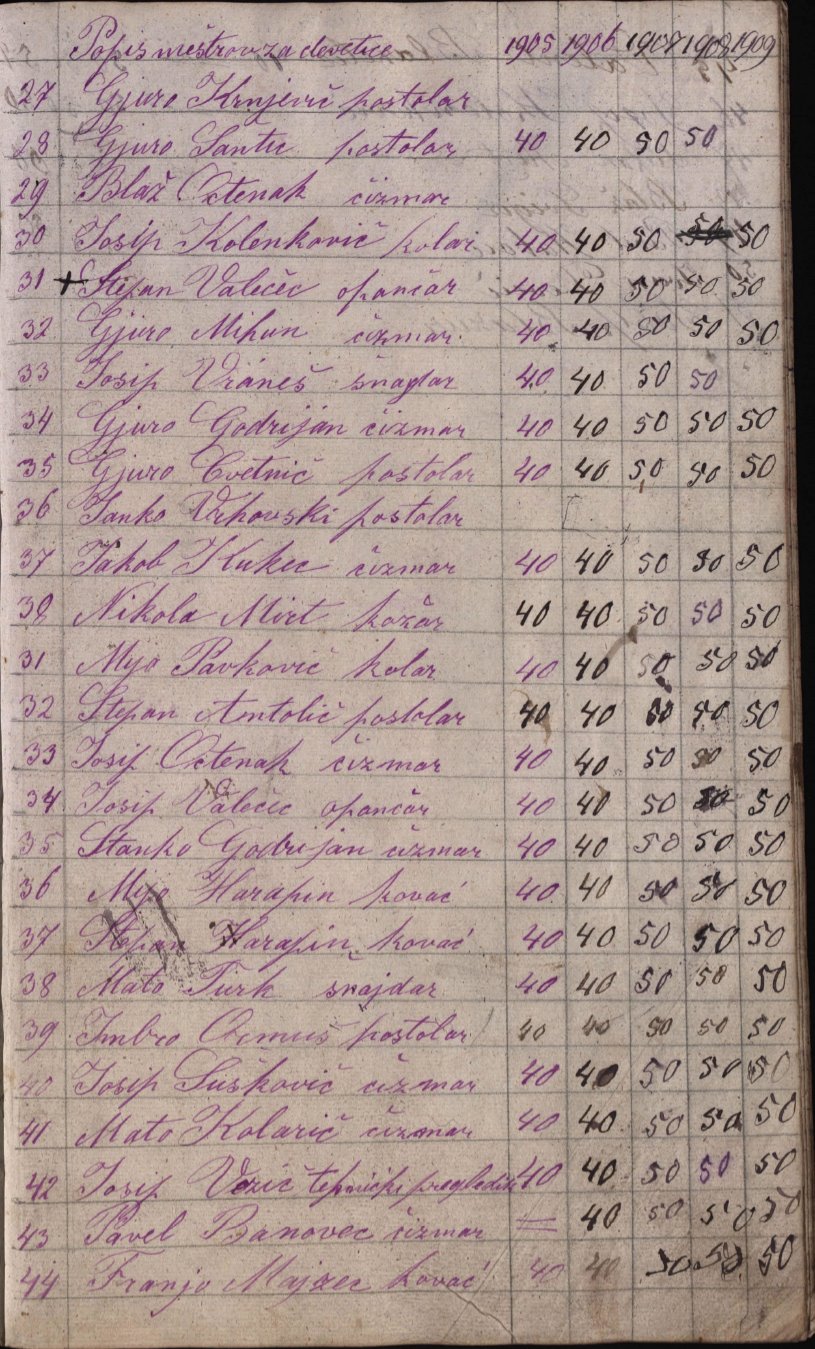 Popis meštrov za devetice 1905 1906 1907 1908 1909
27 Gjuro Krnjević postolar
28 Gjuro Santic postolar 40 40 50 50
29 Blaž Octenak čizmar
30 Josip Kolenković kolar 40 40 50 50 50
31 + Stjepan Valečec opančar 40 40 50 50 50
32 Gjuro Mihun čizmar 40 40 50 50 50
33 Josip Vraneš šnaglar 40 40 50 50
34 Gjuro Godrijan čizmar 40 40 50 50 50
35 Gjuro Cvetnić postolar 40 40 50 50 50
36 Janko Vrhovski postolar
37 Jakob Kukec čizmar 40 40 50 50 50
38 Nikola Mirt kožar 40 40 50 50 50
31 Mijo Pavković kolar 40 40 50 50 50
32 Stepan Antolić postolar 40 40 50 50 50
33 Josip Octenak čizmar 40 40 50 50 50
34 Josip Valečec opančar 40 40 50 50 50
35 Stanko Godrijan čizmar 40 40 50 50 50
36 Mijo Harapin kovać 40 40 50 50 50
37 Stepan Harapin kovać 40 40 50 50 50
38 Mato Turk šnajdar 40 40 50 50 50
39 Imbro postolar 40 40 50 50 50
40 Josip Sušković čizmar 40 40 50 50 50
41 Mato Kolarić čizmar 40 40 50 50 50
42 Josip Vezić 40 40 50 50 50
43 Pavel Banovec čizmar = 40 50 50 50
44 Franjo Majzec kovać 40 40 50 50 50